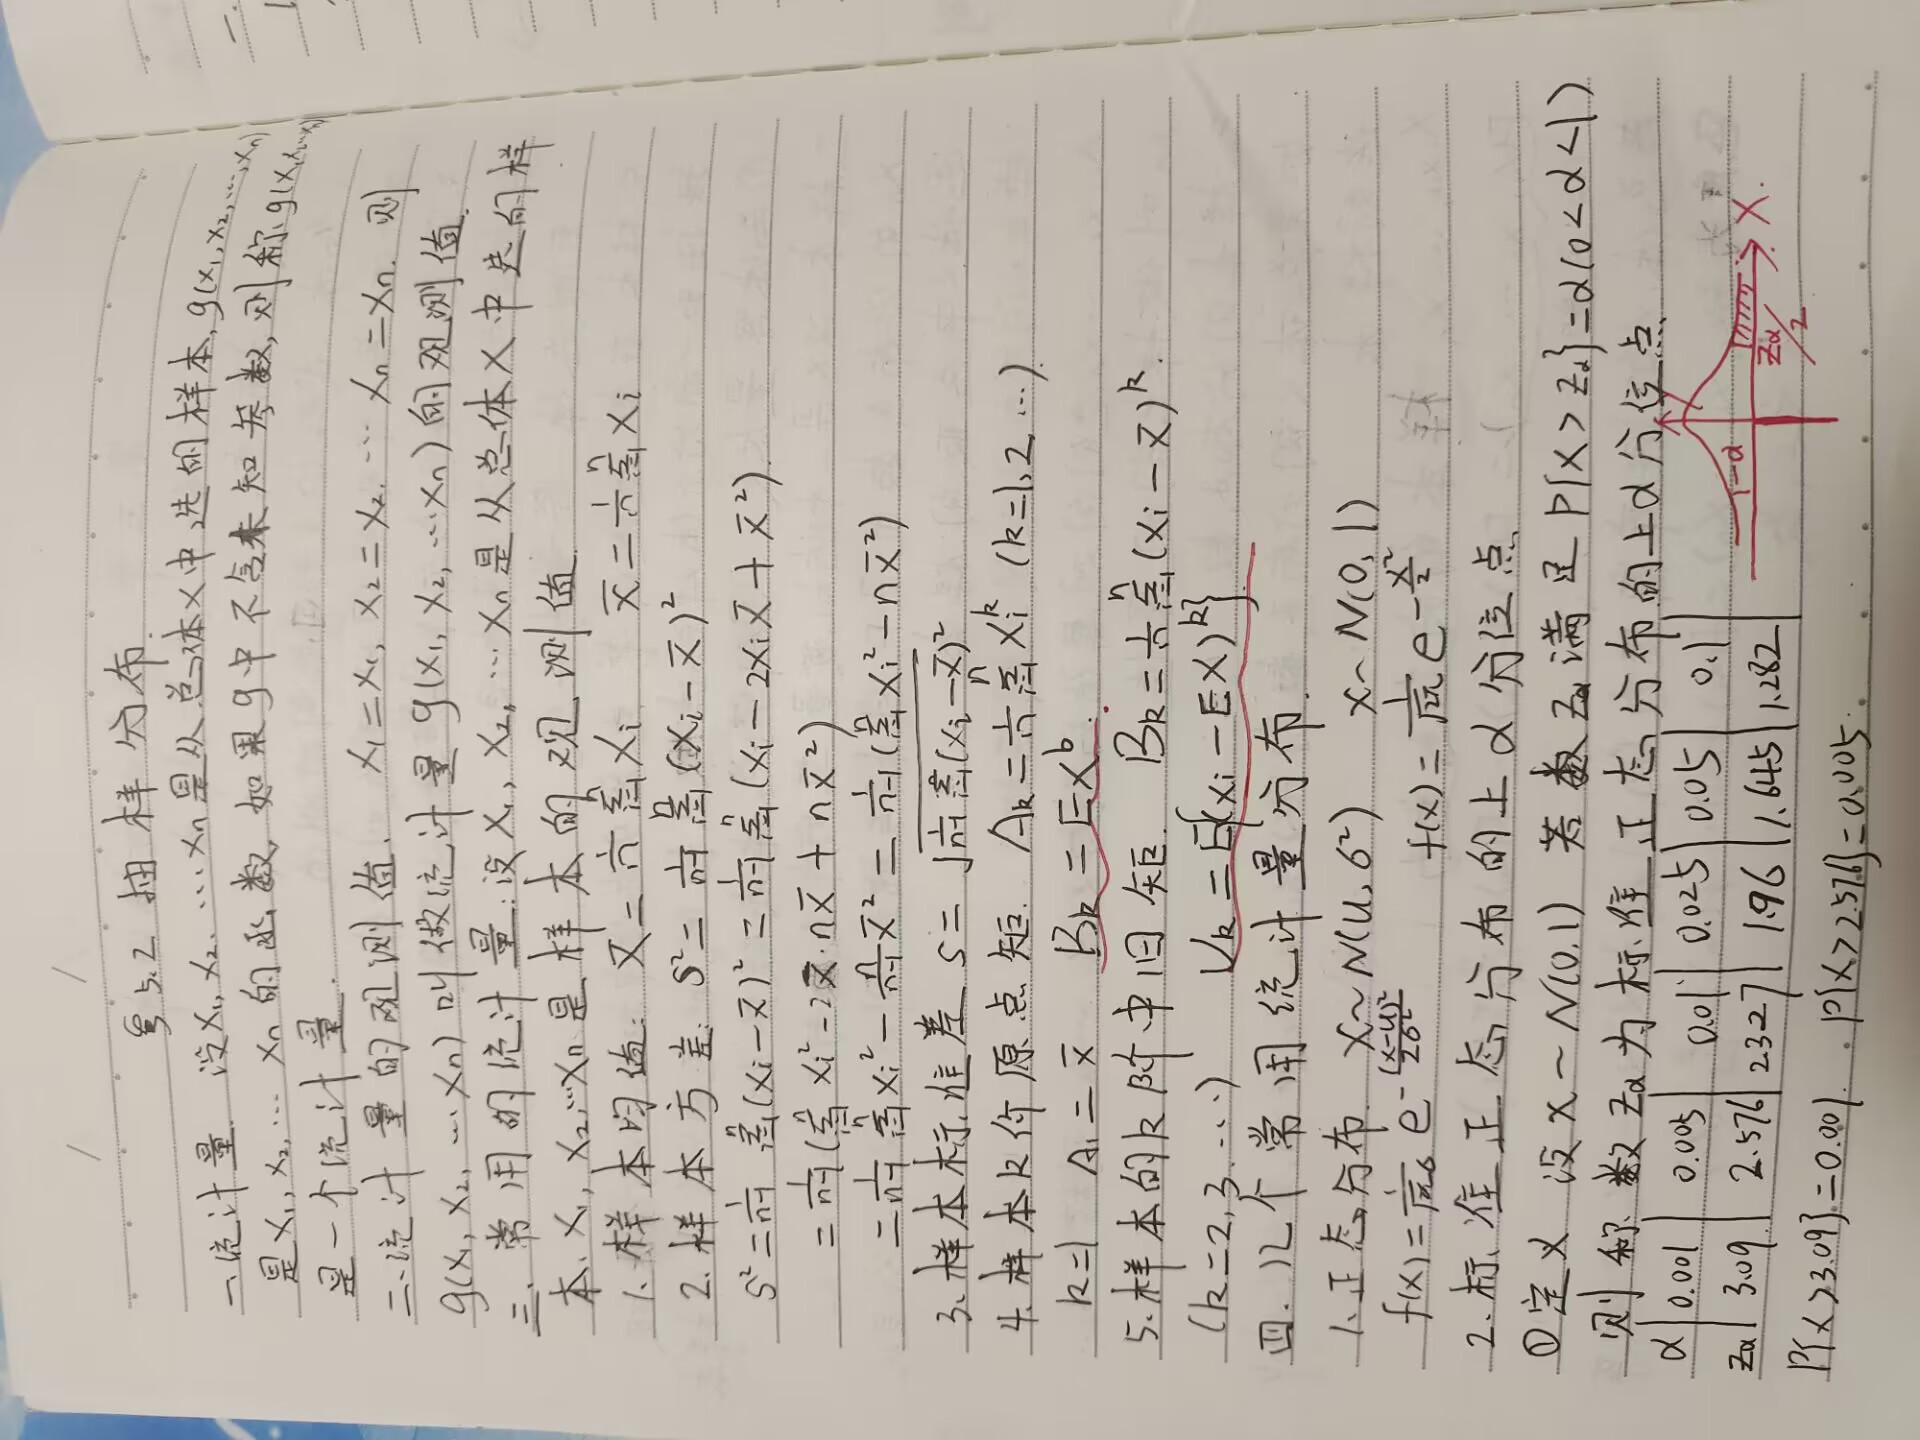 §5.2 抽样分布
一.统计量. 设X₁,X₂.…Xn是从总体X中选的样本,g(X₁,X₂,…,Xn)
是X₁,X₂,…Xn的函数,如果g中不含未知参数,则称g(X₁,X₂…Xn)
是一个统计量.
二.统计量的观测值. X₁=x₁,X₂=x₂.…Xn=xn.则
g(x₁,x₂,…xn)叫做统计量g(X₁,X₂,…Xn)的观测值.
三.常用的统计量:设X₁,X₂,…Xn是从总体X中选的样
本,x₁,x₂,…xn是样本的观测值
1.样本均值: X̄=1/n Σⁿᵢ₌₁Xi x̄=1/n Σⁿᵢ₌₁xi
2.样本方差: S²=1/(n-1) Σⁿᵢ₌₁(Xi-X̄)²
S²=1/(n-1) Σⁿᵢ₌₁(Xi-X̄)²=1/(n-1) Σⁿᵢ₌₁(Xi-2XiX̄+X̄²)
=1/(n-1)(Σⁿᵢ₌₁Xi²-2X̄·nX̄+nX̄²)
=1/(n-1) Σⁿᵢ₌₁Xi²-n/(n-1) X̄²=1/(n-1)(Σⁿᵢ₌₁Xi²-nX̄²)
3.样本标准差 S=√(1/(n-1) Σⁿᵢ₌₁(Xi-X̄)²)
4.样本k价原点矩. Ak=1/n Σⁿᵢ₌₁Xiᵏ (k=1,2…).
k=1 A₁=X̄ Bk=EXᵇ.
5.样本的k阶中心矩. Bk=1/n Σⁿᵢ₌₁(Xi-X̄)ᵏ.
(k=2,3…) Vk=E{(Xi-EX)ᵏ}.
四.几个常用统计量分布.
1.正态分布 X~N(u,σ²) X~N(0,1)
f(x)=1/(√2π σ) e^-(x-u)²/2σ² f(x)=1/√2π e^-x²/2
2.标准正态分布的上α分位点.
①定义 设X~N(0.1) 若数zα满足P{X>zα}=α(0<α<1)
则称数zα为标准正态分布的上α分位点.
α | 0.001 | 0.005 | 0.01 | 0.025 | 0.05 | 0.1
zα | 3.09 | 2.576 | 2.327 | 1.96 | 1.645 | 1.282
1-α zα/2 X
P{X>3.09}=0.001. P{X>2.576}=0.005.